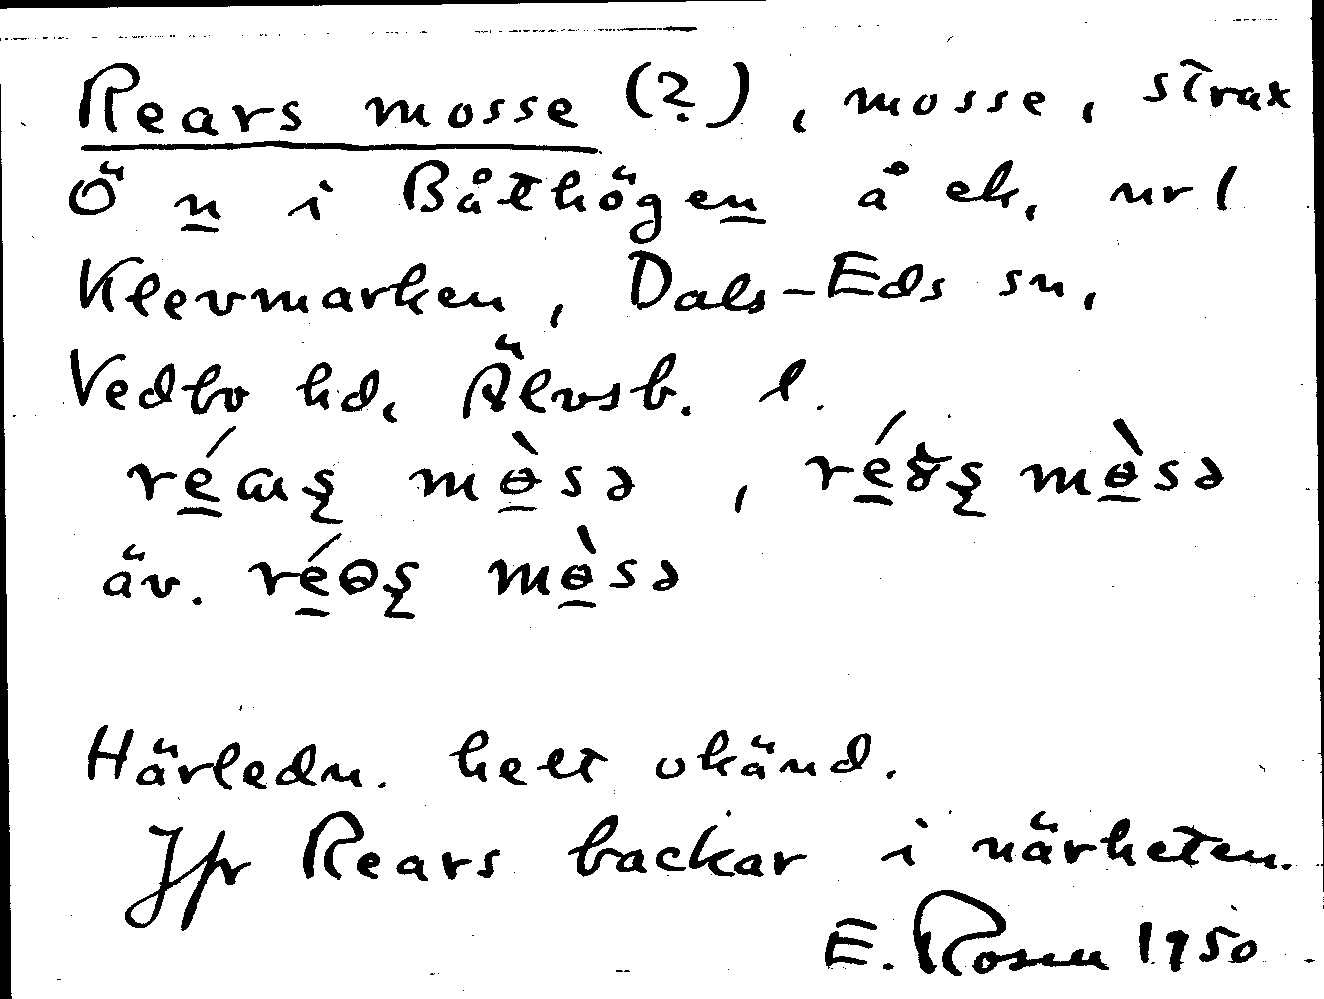 Rears mosse (?), mosse, strax
Ö n i Båthögen å ek. nr 1
Klevmarken, Dals-Eds sn,
Vedbo hd, Älvsb. l.
mò̱sə , mò̱sə
äv. mò̱sə
Härledn. helt okänd.
Jfr Rears backar i närheten.
E. Rosen 1950